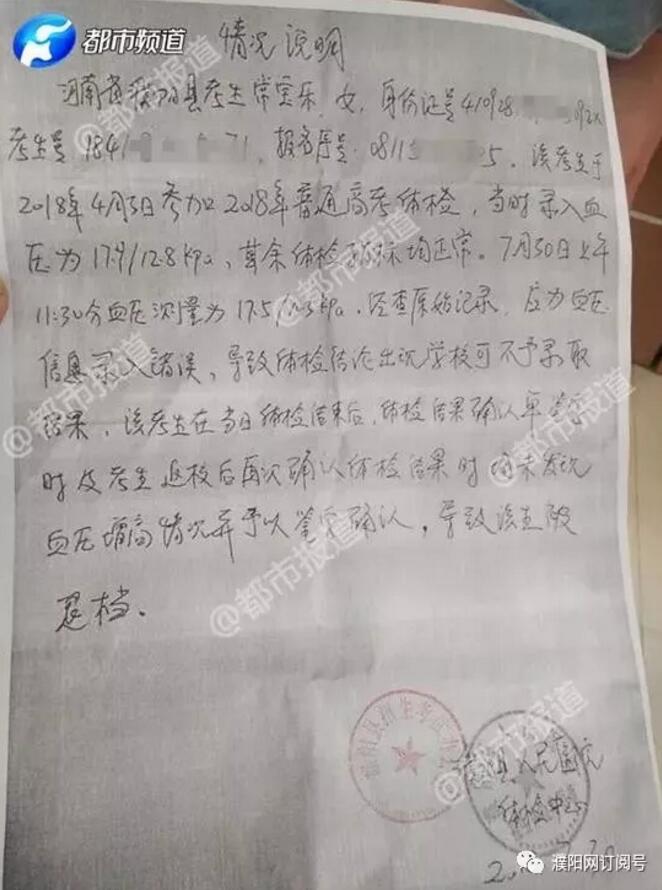 都市频道
情况说明
河南省濮阳县考生常宝乐,女,身份证号410928 092X
考生号1841 71,报名序号0811 5。该考生于
2018年4月3日参加2018年普通高考体检,当时录入血
压为17.9/12.8kpa,其余体检指标均正常。7月30日上午
11:30分血压测量为17.5/ kpa,经查原始记录,应为血压
信息录入错误,导致体检结论出现学校可不予录取
结果,该考生在当日体检结束后,体检结果确认单签字
时及考生返校后再次确认体检结果时均未发现
血压增高情况并予以签字确认,导致该生被
退档。
@都市报道
濮阳县招生考试办公室
濮阳县人民医院
体检中心
濮阳网订阅号